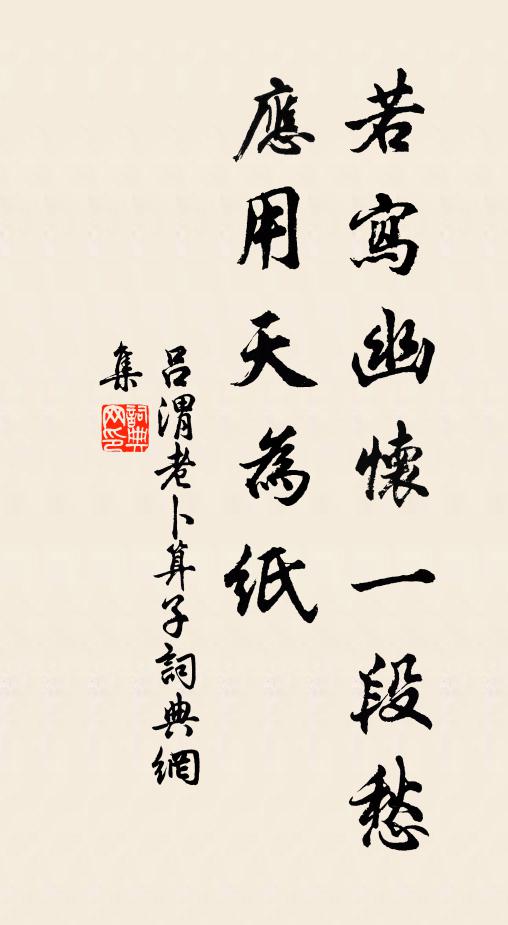 若寫幽懷一段愁
應用天為紙
呂渭老卜算子詞典網
集
詞典网印